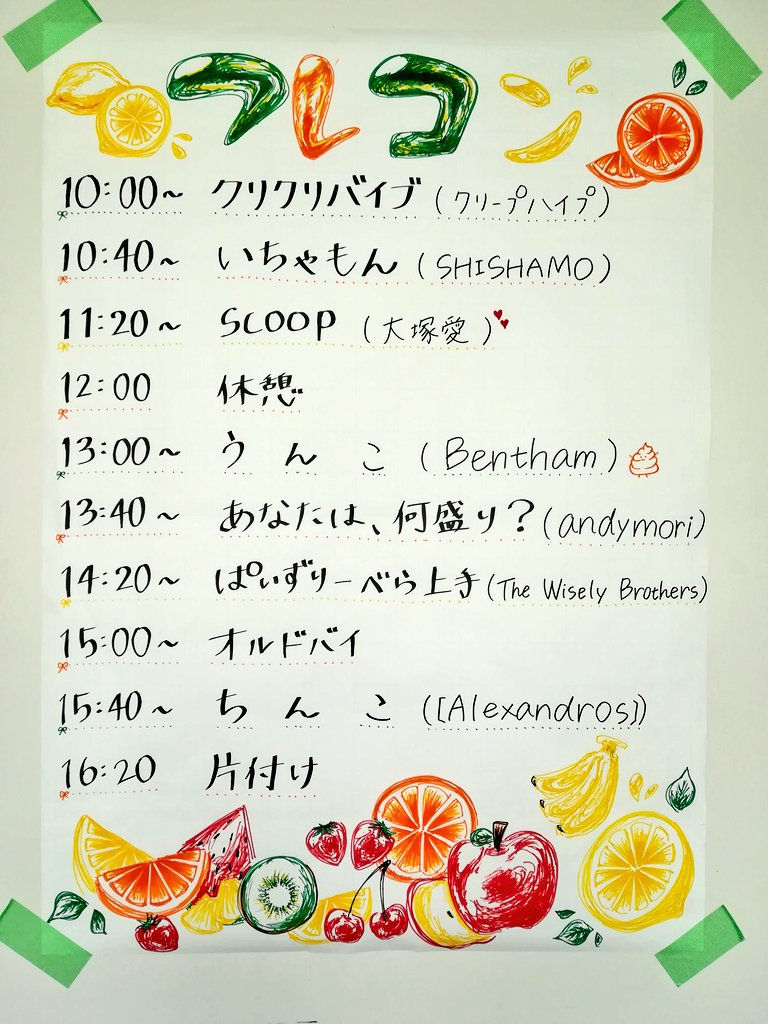 フレコン
10:00~ クリクリバイブ (クリープハイプ)
10:40~ いちゃもん (SHISHAMO)
11:20~ SCOOP (大塚愛)
12:00 休憩
13:00~ うんこ (Bentham)
13:40~ あなたは、何盛り? (andymori)
14:20~ ぱいずりーべら上手 (The Wisely Brothers)
15:00~ オルドバイ
15:40~ ちんこ ([Alexandros])
16:20 片付け